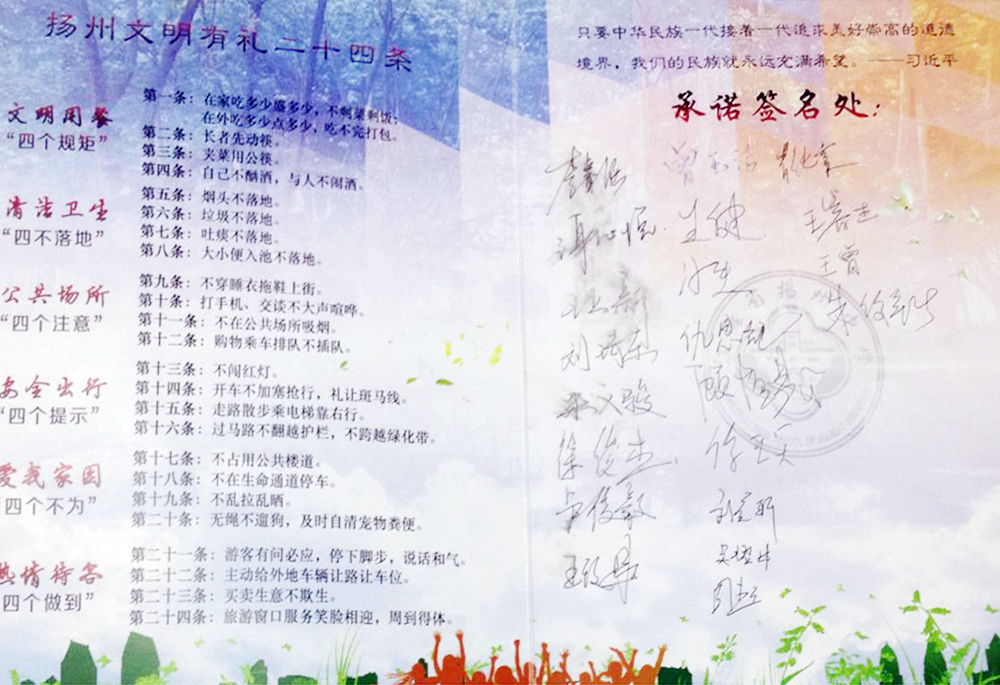 扬州文明有礼二十四条
文明用餐
“四个规矩”
第一条：在家吃多少盛多少，不剩菜剩饭；
在外吃多少点多少，吃不完打包。
第二条：长者先动筷。
第三条：夹菜用公筷。
第四条：自己不酗酒，与人不闹酒。
清洁卫生
“四不落地”
第五条：烟头不落地。
第六条：垃圾不落地。
第七条：吐痰不落地。
第八条：大小便入池不落地。
公共场所
“四个注意”
第九条：不穿睡衣拖鞋上街。
第十条：打手机、交谈不大声喧哗。
第十一条：不在公共场所吸烟。
第十二条：购物乘车排队不插队。
安全出行
“四个提示”
第十三条：不闯红灯。
第十四条：开车不加塞抢行，礼让斑马线。
第十五条：走路散步乘电梯靠右行。
第十六条：过马路不翻越护栏，不跨越绿化带。
爱我家园
“四个不为”
第十七条：不占用公共楼道。
第十八条：不在生命通道停车。
第十九条：不乱拉乱晒。
第二十条：无绳不遛狗，及时自清宠物粪便。
热情待客
“四个做到”
第二十一条：游客有问必应，停下脚步，说话和气。
第二十二条：主动给外地车辆让路让车位。
第二十三条：买卖生意不欺生。
第二十四条：旅游窗口服务笑脸相迎，周到得体。
只要中华民族一代接着一代追求美好崇高的道德
境界，我们的民族就永远充满希望。——习近平
承诺签名处：
王曾
徐俊杰